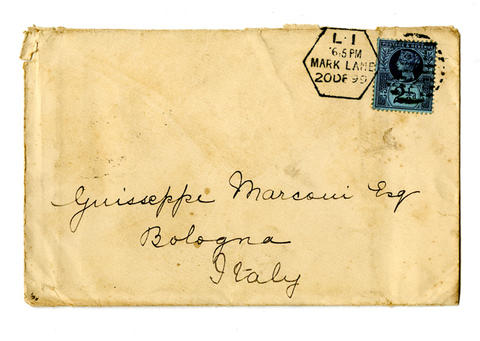 L·1
6.5 PM
MARK LANE
20 DE 99
POSTAGE & REVENUE
Guisseppe Marconi Esq
Bologna
Italy